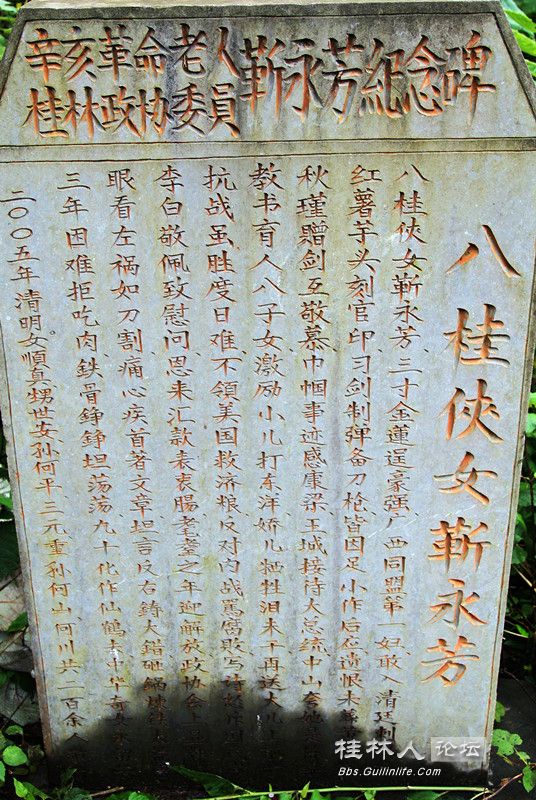 辛亥革命老人
桂林政协委員
靳永芳紀念碑
八桂俠女靳永芳
八桂俠女靳永芳、三寸金蓮逞豪强、广西同盟第一妇、敢入清廷
红薯芋头刻官印、习剑制弹备刀枪、皆因足小作后位、遗恨未
秋瑾贈剑互敬慕、巾帼事迹感康梁、王城接待大总统、中山夸她
教书育人八子女、激励小儿打东洋、娇儿牺牲泪未干、再送大儿上
抗战虽胜度日难、不領美国救济粮、反对内战罵腐败、写诗
李白敬佩致慰问、恩来汇款表衷腸、老耋之年迎解放、政协会上
眼看左禍如刀割、痛心疾首著文章、坦言反右鋳大錯、砸鍋
三年困难拒吃肉、鉄骨錚錚坦荡荡、九十化作仙鹤去、中华
二〇〇五年清明女順真甥世安、孙何平、三元、重孙何山、何川共二百余人
桂林人论坛
Bbs.Guilinlife.Com